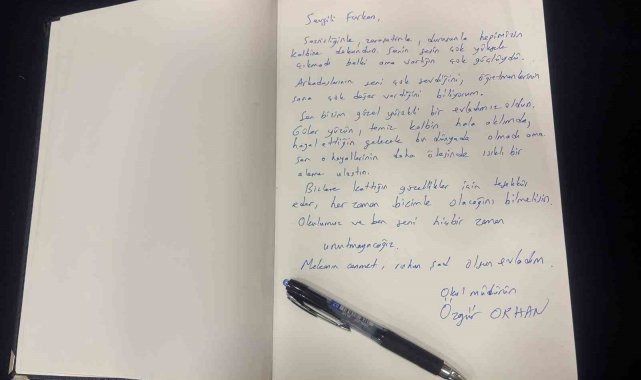 Sevgili Furkan,
Sessizliğinle, zarafetinle, duruşunla hepimizin
kalbine dokundun. Senin sesin çok yüksek
çıkmadı belki ama varlığın çok güçlüydü.
Arkadaşlarının seni çok sevdiğini, öğretmenlerinin
sana çok değer verdiğini biliyorum.
Sen bizim güzel yürekli bir evladımız oldun.
Güler yüzün, temiz kalbin hala aklımda,
hayal ettiğin gelecek bu dünyada olmadı ama
sen o hayallerinin daha ötesinde ışıklı bir
aleme ulaştın.
Bizlere kattığın güzellikler için teşekkür
eder, her zaman bizimle olacağını bilmelisin.
Okulumuz ve ben seni hiçbir zaman
unutmayacağız.
Mekanın cennet, ruhun şad olsun evladım.
Okul müdürün
Özgür ORHAN